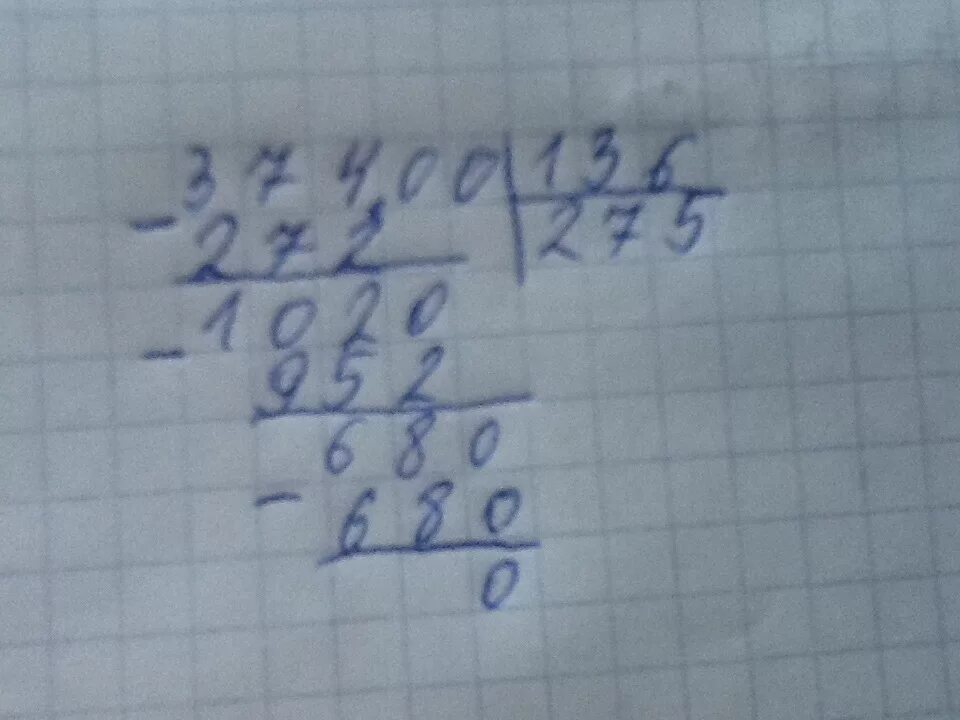 37400 136
- 272 275
1020
- 952
680
- 680
0